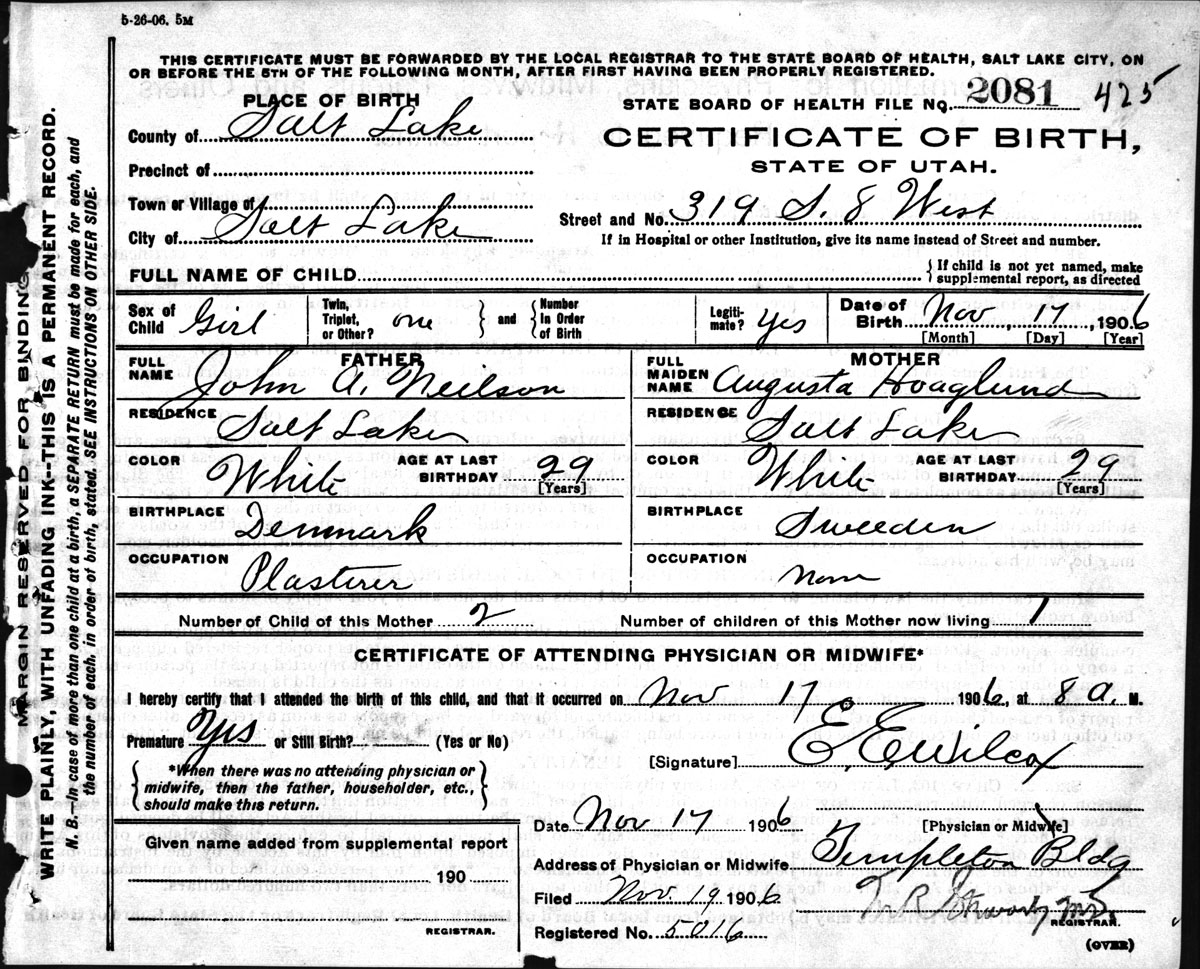 5-26-06. 5M
THIS CERTIFICATE MUST BE FORWARDED BY THE LOCAL REGISTRAR TO THE STATE BOARD OF HEALTH, SALT LAKE CITY, ON
OR BEFORE THE 5TH OF THE FOLLOWING MONTH, AFTER FIRST HAVING BEEN PROPERLY REGISTERED.
PLACE OF BIRTH
STATE BOARD OF HEALTH FILE No. 2081 425
County of Salt Lake
CERTIFICATE OF BIRTH,
STATE OF UTAH.
Precinct of
Town or Village of
Street and No. 319 S. 8 West
City of Salt Lake
If in Hospital or other Institution, give its name instead of Street and number.
FULL NAME OF CHILD
{If child is not yet named, make
supplemental report, as directed
Sex of Child Girl
Twin, Triplet, or Other? one } and {Number In Order of Birth
Legitimate? yes
Date of Birth Nov, 17, 1906
[Month] [Day] [Year]
FATHER
FULL NAME John A. Neilson
RESIDENCE Salt Lake
COLOR White AGE AT LAST BIRTHDAY 29
[Years]
BIRTHPLACE Denmark
OCCUPATION Plasterer
MOTHER
FULL MAIDEN NAME Augusta Hoaglund
RESIDENCE Salt Lake
COLOR White AGE AT LAST BIRTHDAY 29
[Years]
BIRTHPLACE Sweeden
OCCUPATION None
Number of Child of this Mother 2 Number of children of this Mother now living 1
CERTIFICATE OF ATTENDING PHYSICIAN OR MIDWIFE*
I hereby certify that I attended the birth of this child, and that it occurred on Nov 17 1906, at 8 a. M.
Premature Yes or Still Birth? (Yes or No)
[Signature] E. E. Wilcox
{*When there was no attending physician or
midwife, then the father, householder, etc.,
should make this return.}
Date Nov 17 1906 [Physician or Midwife]
Given name added from supplemental report
190
REGISTRAR.
Address of Physician or Midwife Templeton Bldg
Filed Nov. 19 1906
REGISTRAR.
Registered No. 5016
(OVER)
MARGIN RESERVED FOR BINDING
WRITE PLAINLY, WITH UNFADING INK--THIS IS A PERMANENT RECORD.
N. B.--In case of more than one child at a birth, a SEPARATE RETURN must be made for each, and
the number of each, in order of birth, stated. SEE INSTRUCTIONS ON OTHER SIDE.